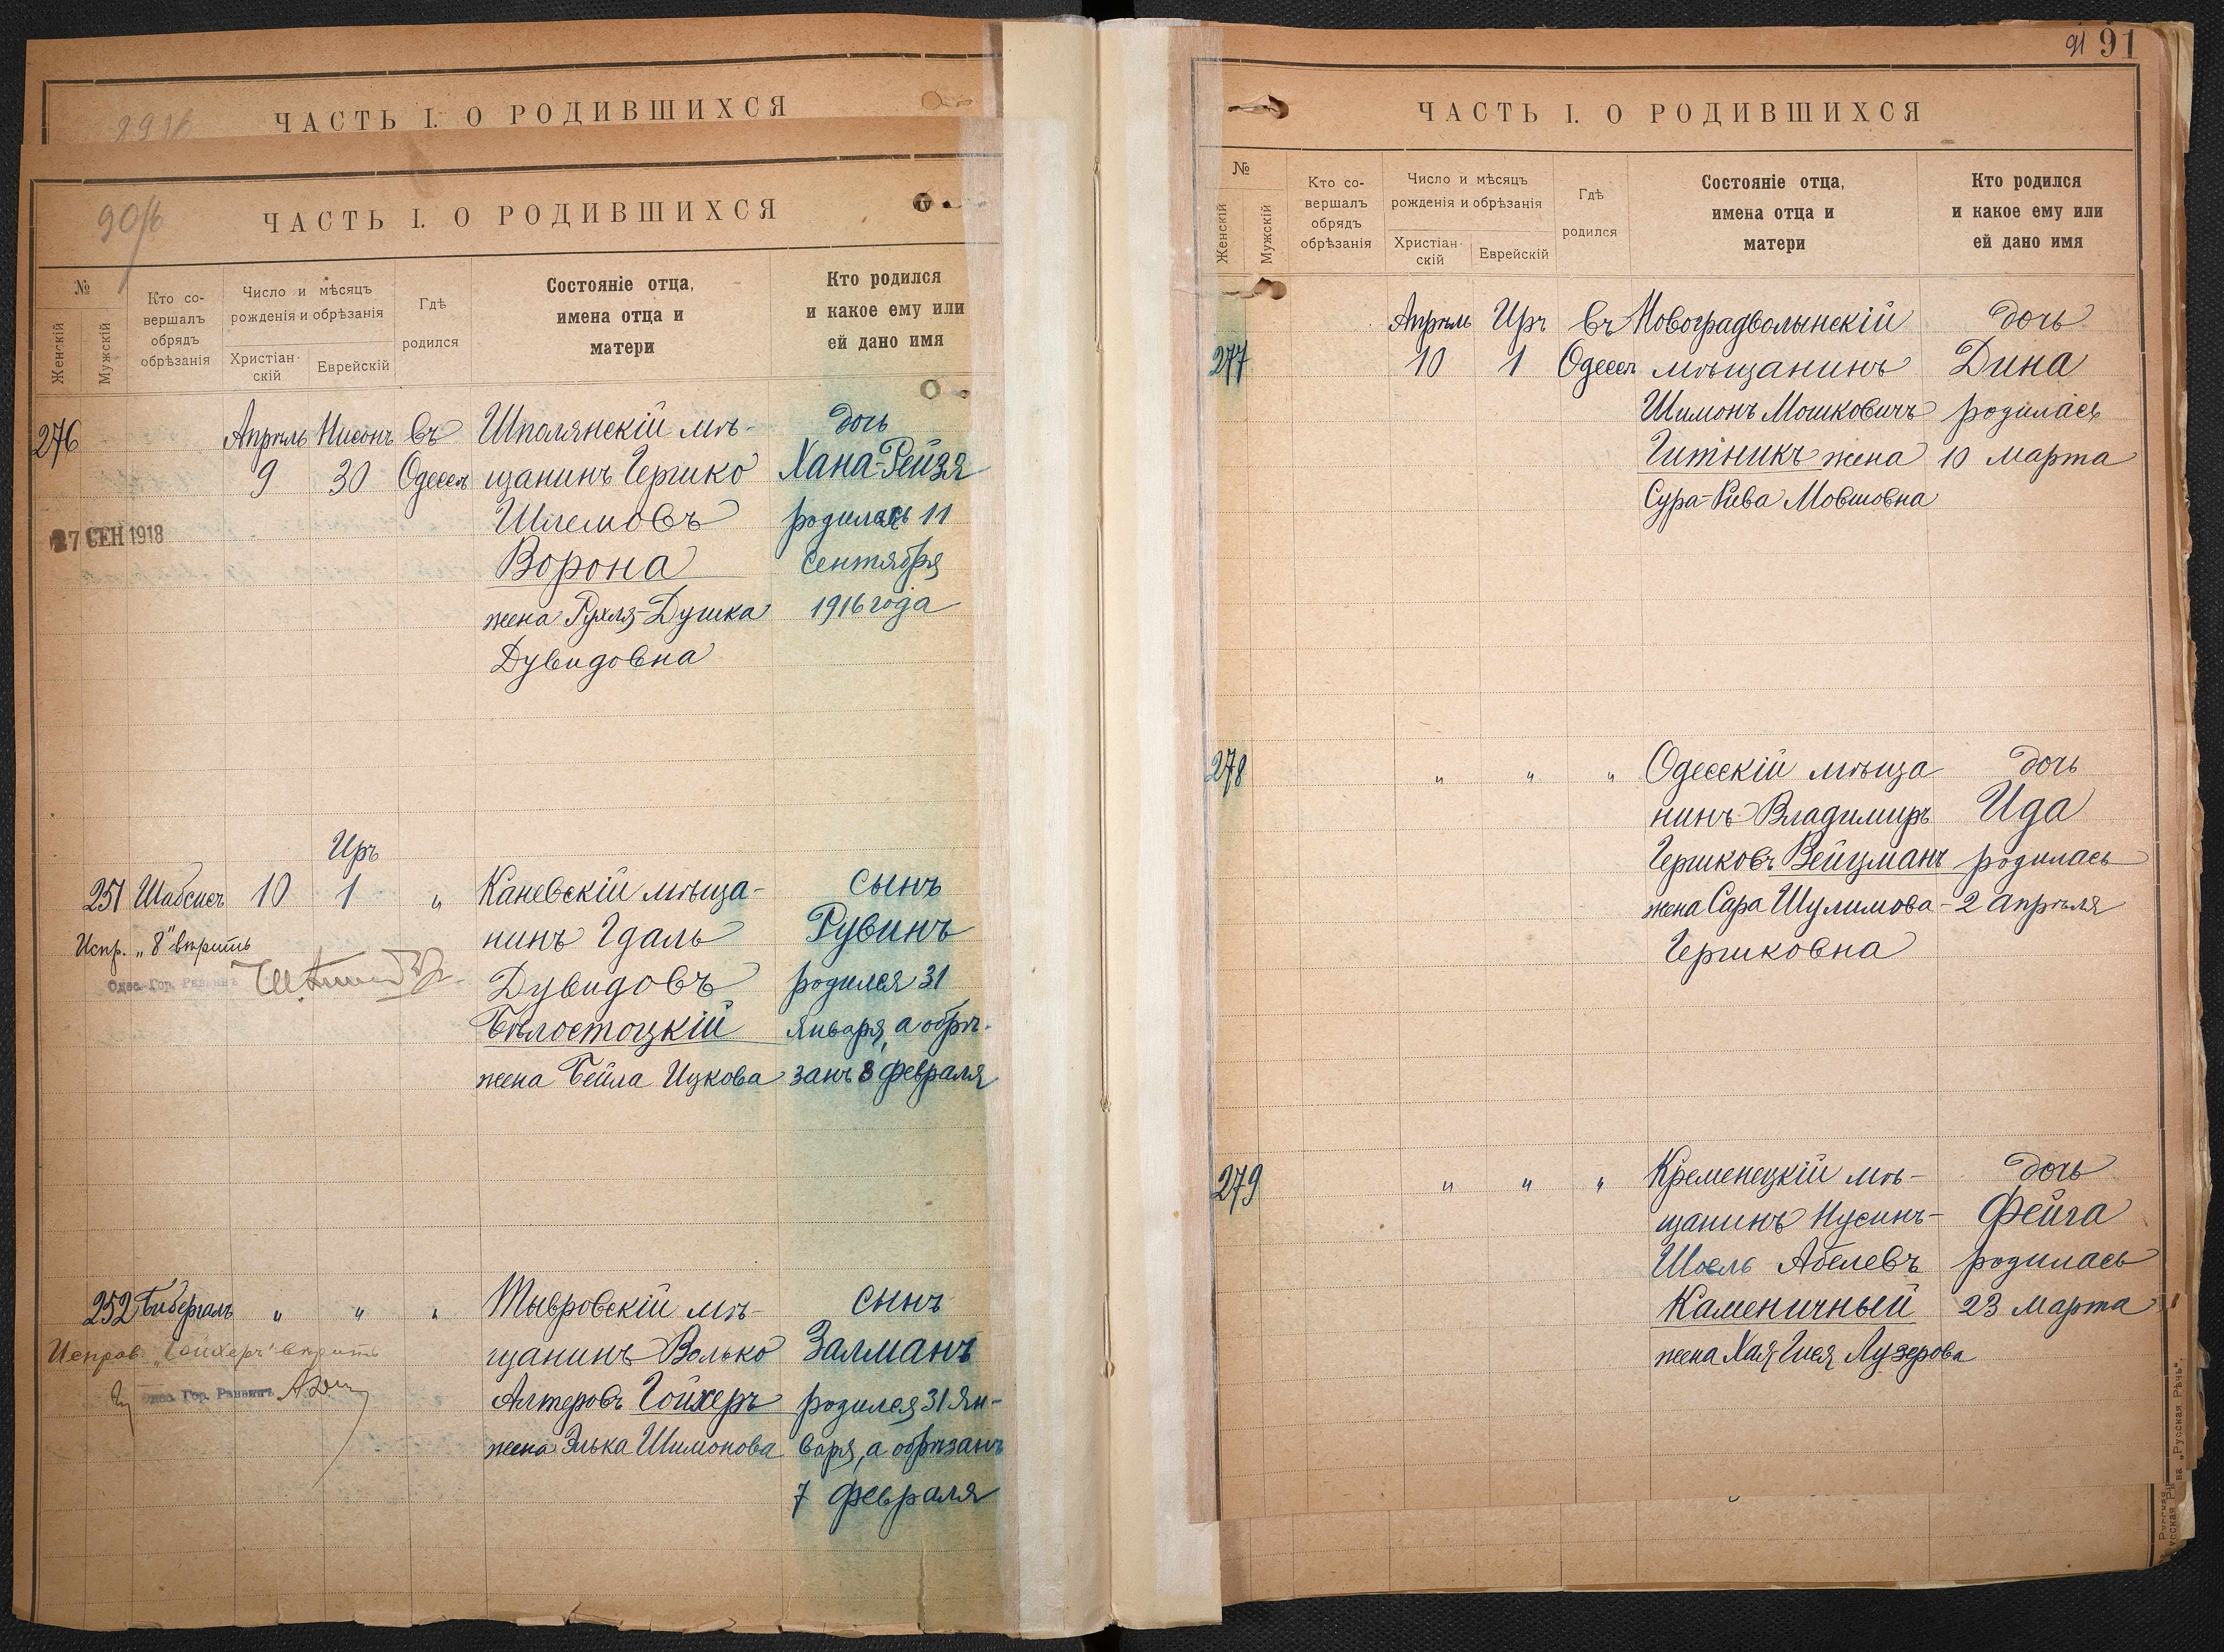 ЧАСТЬ I. О РОДИВШИХСЯ
90/б
ЧАСТЬ I. О РОДИВШИХСЯ
№
Женскій
Мужскій
Кто со-
вершалъ
обрядъ
обрѣзанія
Число и мѣсяцъ
рожденія и обрѣзанія
Христіан-
скій
Еврейскій
Гдѣ
родился
Состояніе отца,
имена отца и
матери
Кто родился
и какое ему или
ей дано имя
276 Апрѣль Нисонъ въ Шполянскій мѣ- дочь
9 30 Одессѣ щанинъ Гершко Хана-Рейзя
27 СЕН 1918
Шлемовъ родилась 11
Ворона Сентября
жена Рухля-Душка 1916 года
Дувидовна
Иръ
251 Шабсисъ 10 1 " Каневскій мѣща- сынъ
Испр. „8" вѣрить
нинъ Гдаль Рувинъ
Одес. Гор. Раввинъ
Дувидовъ родился 31
Бѣлостоцкій января, а обрѣ-
жена Бейла Ицкова занъ 8 февраля
252 Бибергалъ " " " Тывровскій мѣ- сынъ
Исправ. „Гойхеръ" вѣрить
щанинъ Волько Залманъ
Одес. Гор. Раввинъ
Алтеровъ Гойхеръ родился 31 Ян-
жена Элька Шимонова варя, а обрѣзанъ
7 февраля
91 91
ЧАСТЬ I. О РОДИВШИХСЯ
№
Женскій
Мужскій
Кто со-
вершалъ
обрядъ
обрѣзанія
Число и мѣсяцъ
рожденія и обрѣзанія
Христіан-
скій
Еврейскій
Гдѣ
родился
Состояніе отца,
имена отца и
матери
Кто родился
и какое ему или
ей дано имя
Апрѣль Иръ въ Новоградволынскій дочь
277 10 1 Одессѣ мѣщанинъ Дина
Шимонъ Мошковичъ родилась
Гитникъ жена 10 марта
Сура-Рива Мовшовна
278 " " " Одесскій мѣща- дочь
нинъ Владимиръ Ида
Гершковъ Вейцманъ родилась
жена Сара Шулимова- 2 апрѣля
Гершковна
279 " " " Кременецкій мѣ- дочь
щанинъ Нусинъ- Фейга
Шоель Абелевъ родилась
Каменичный 23 марта
жена Хая Гися Лузерова
ва „Русская Рѣчь".